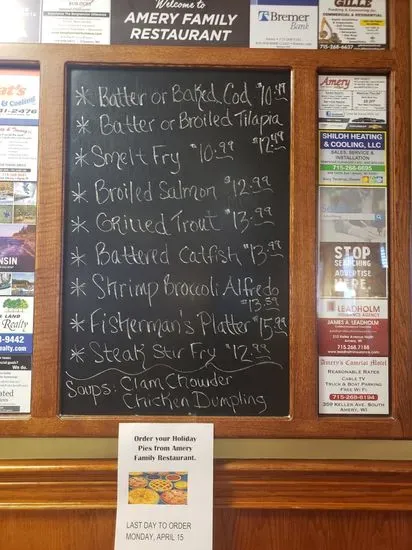 Welcome to
AMERY FAMILY
RESTAURANT
Bremer
Bank
715-268-6637
* Batter or Baked Cod $10.99
* Batter or Broiled Tilapia
$12.49
* Smelt Fry $10.99
* Broiled Salmon $12.99
* Grilled Trout $13.99
* Battered Catfish $13.99
* Shrimp Broccoli Alfredo
$13.59
* Fisherman's Platter $15.99
* Steak Stir Fry $12.99
Soups: Clam Chowder
Chicken Dumpling
& Cooling
Realty
Amery
SHILOH HEATING
& COOLING, LLC
SALES, SERVICE &
INSTALLATION
715-268-6695
STOP
SEARCHING
ADVERTISE
HERE.
LEADHOLM
INSURANCE AGENCY
JAMES A. LEADHOLM
715.268.7188
Amery's Camelot Motel
REASONABLE RATES
CABLE TV
TRUCK & BOAT PARKING
FREE WI-FI
715-268-8194
359 KELLER AVE. SOUTH
AMERY, WI
Order your Holiday
Pies from Amery
Family Restaurant.
LAST DAY TO ORDER
MONDAY, APRIL 15